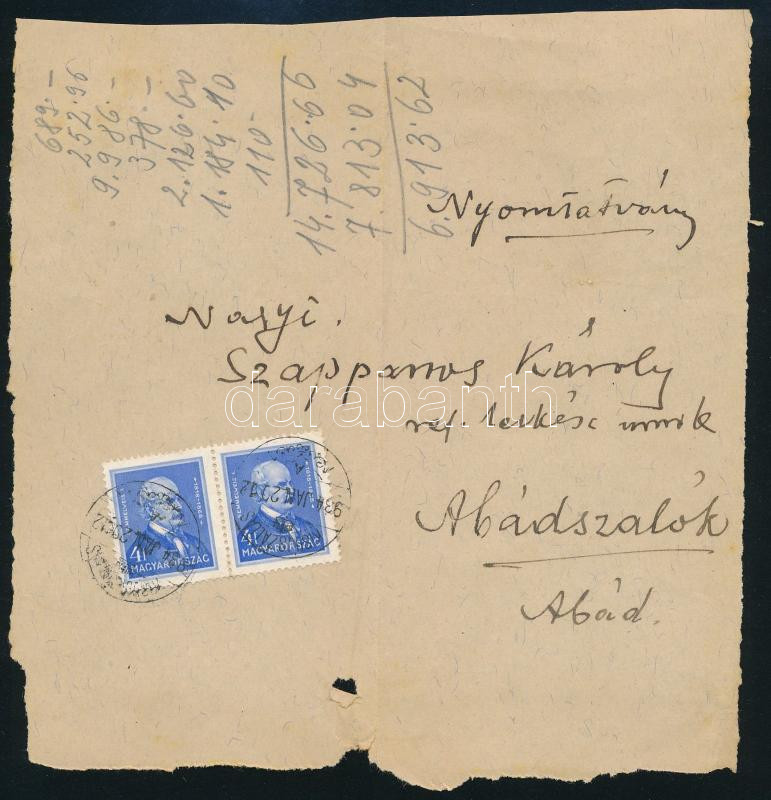 689.—
252.96
9.986.—
378.—
2.126.60
1.184.10
110.—
14.726.66
7.813.04
6.913.62
Nyomtatvány
Nagyt.
Szappanos Károly
ref. lelkész úrnak
Abádszalók
Abád.
darabanth
40
MAGYARORSZÁG
40
MAGYARORSZÁG
934 JAN.20.12